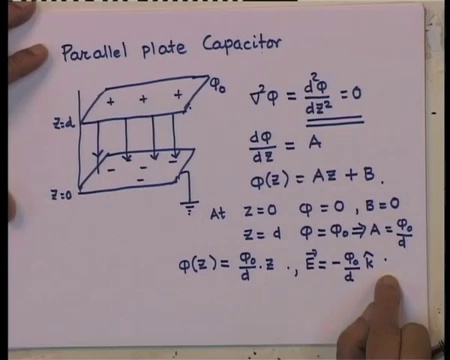 Parallel plate Capacitor
φ₀
+ + +
z=d
- - -
- -
z=0
∇²φ = d²φ/dz² = 0
dφ/dz = A
φ(z) = Az + B.
At z=0 φ=0, B=0
z=d φ=φ₀ ⇒ A = φ₀/d
φ(z) = φ₀/d . z ., E⃗ = -φ₀/d k̂ .